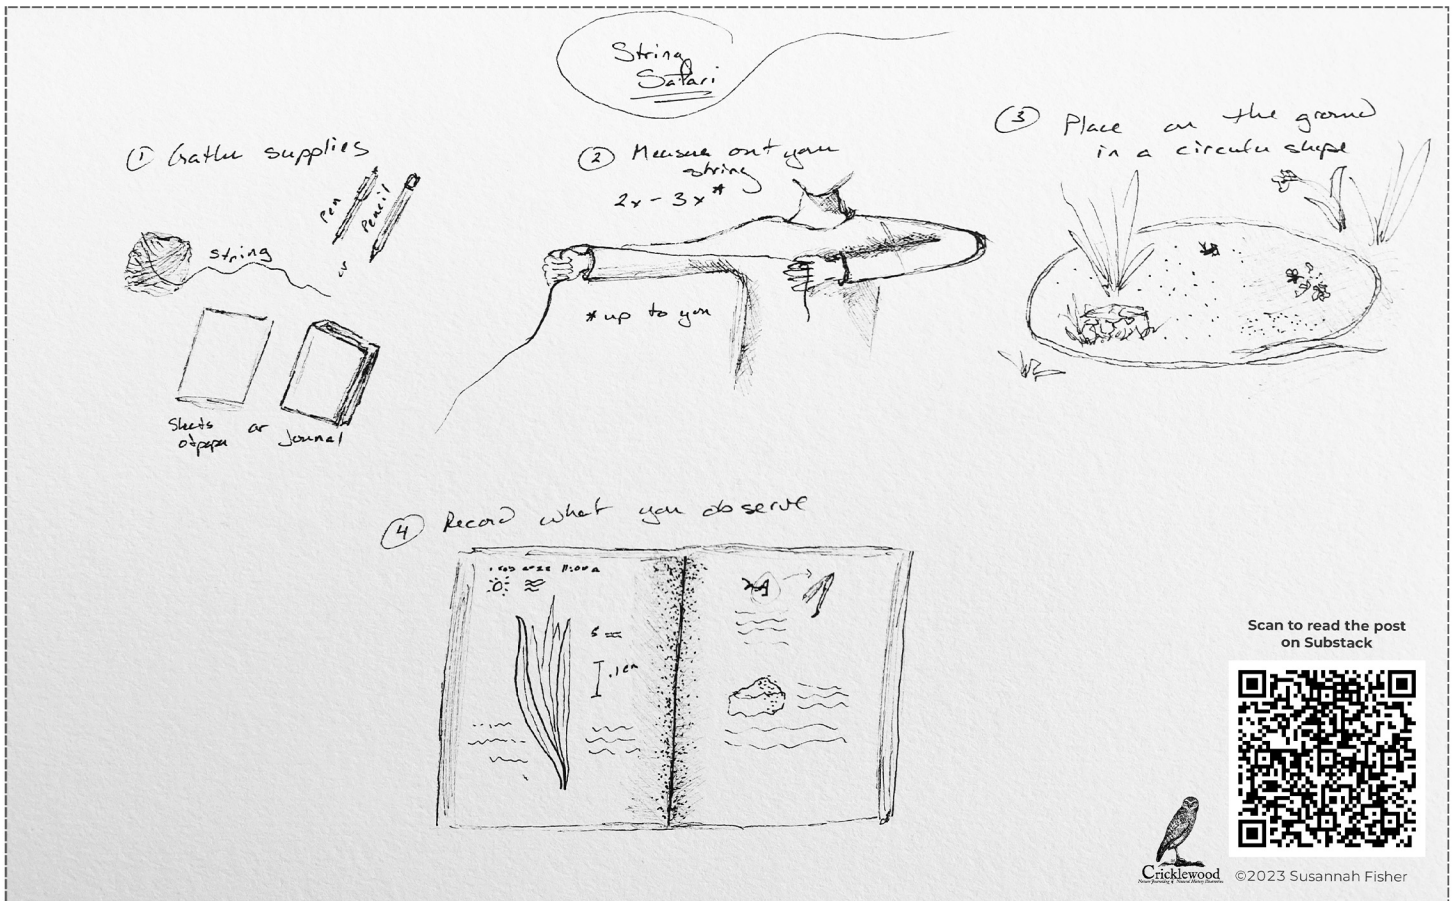 String
Safari
① Gather supplies
pen
pencil
string
Sheets or Journal
of paper
② Measure out your
string
2x - 3x*
* up to you
③ Place on the ground
in a circular shape
④ Record what you observe
.1cm
Scan to read the post
on Substack
Cricklewood
©2023 Susannah Fisher